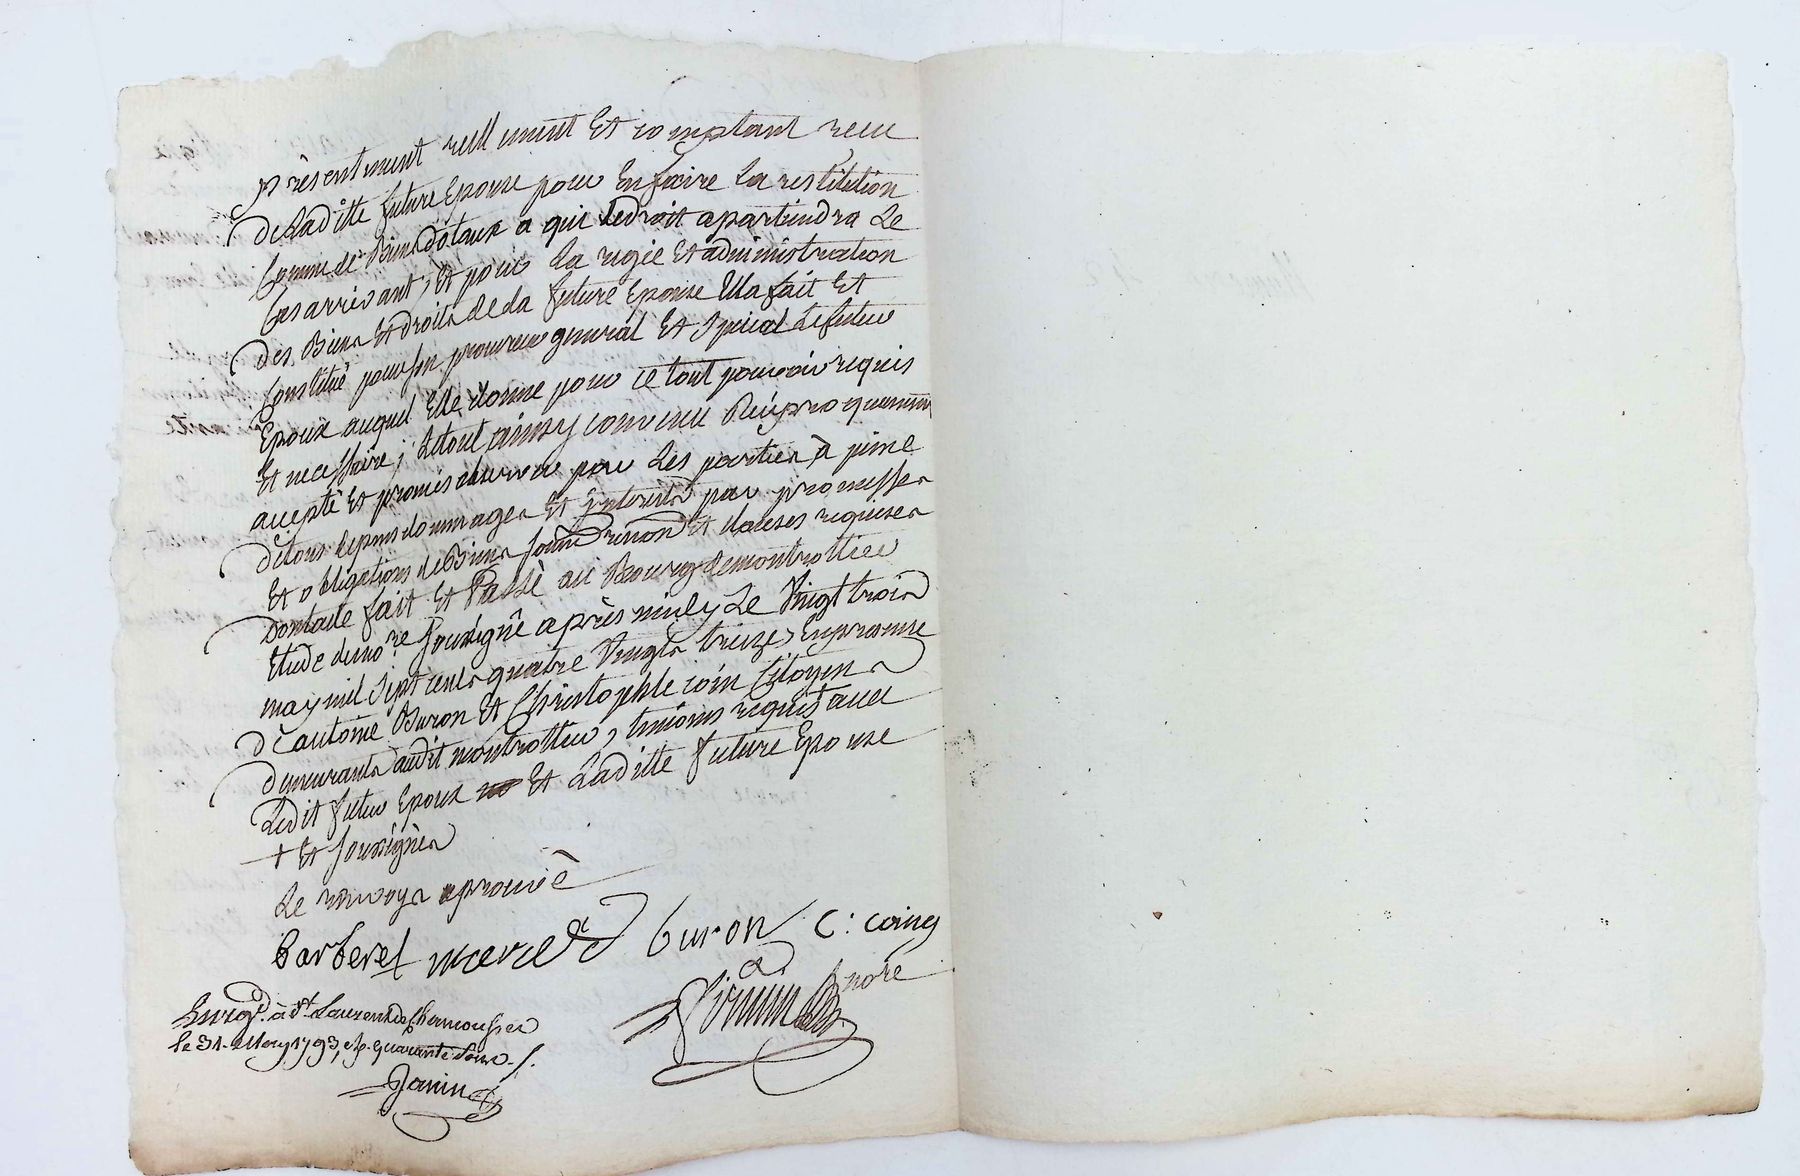 présentment reellement Et comptant recu
de Laditte future Epouse pour En faire La restitution
Comme de Biens dotaux a qui le droit apartiendra Le
Cas arrivant, Et pour La regie Et administration
des Biens Et droits de la future Epouse Elle a fait Et
Constitué pour son procureur general Et Special Le futur
Epoux auquel Elle donne pour ce tout pouvoir requis
Et necessaire; Le tout ainsy convenu Reciproquement
accepté Et promis observer par Les parties, à peine
de tous depens dommages Et Interets par promesses
Et obligations de Biens soumon renon on Et clauses requises
dont acte fait Et Passé au Bourg de montrottier
Etude du no.re soussigné après midy Le Vingt trois
may mil Sept cents quatre Vingts treize, En presence
d'Eantoine Buron Et Christophle coin Citoyens
demeurants audit montrottier, temoins requis avec
Ledit futur Epoux Et Laditte future Epouse
+ Et soussignés
Le renvoys aprouvé
Barberet
buron C: coing
nore
Enregé. à St. Laurent de Chamousset
le 31. May 1793, quarante sous
Janin